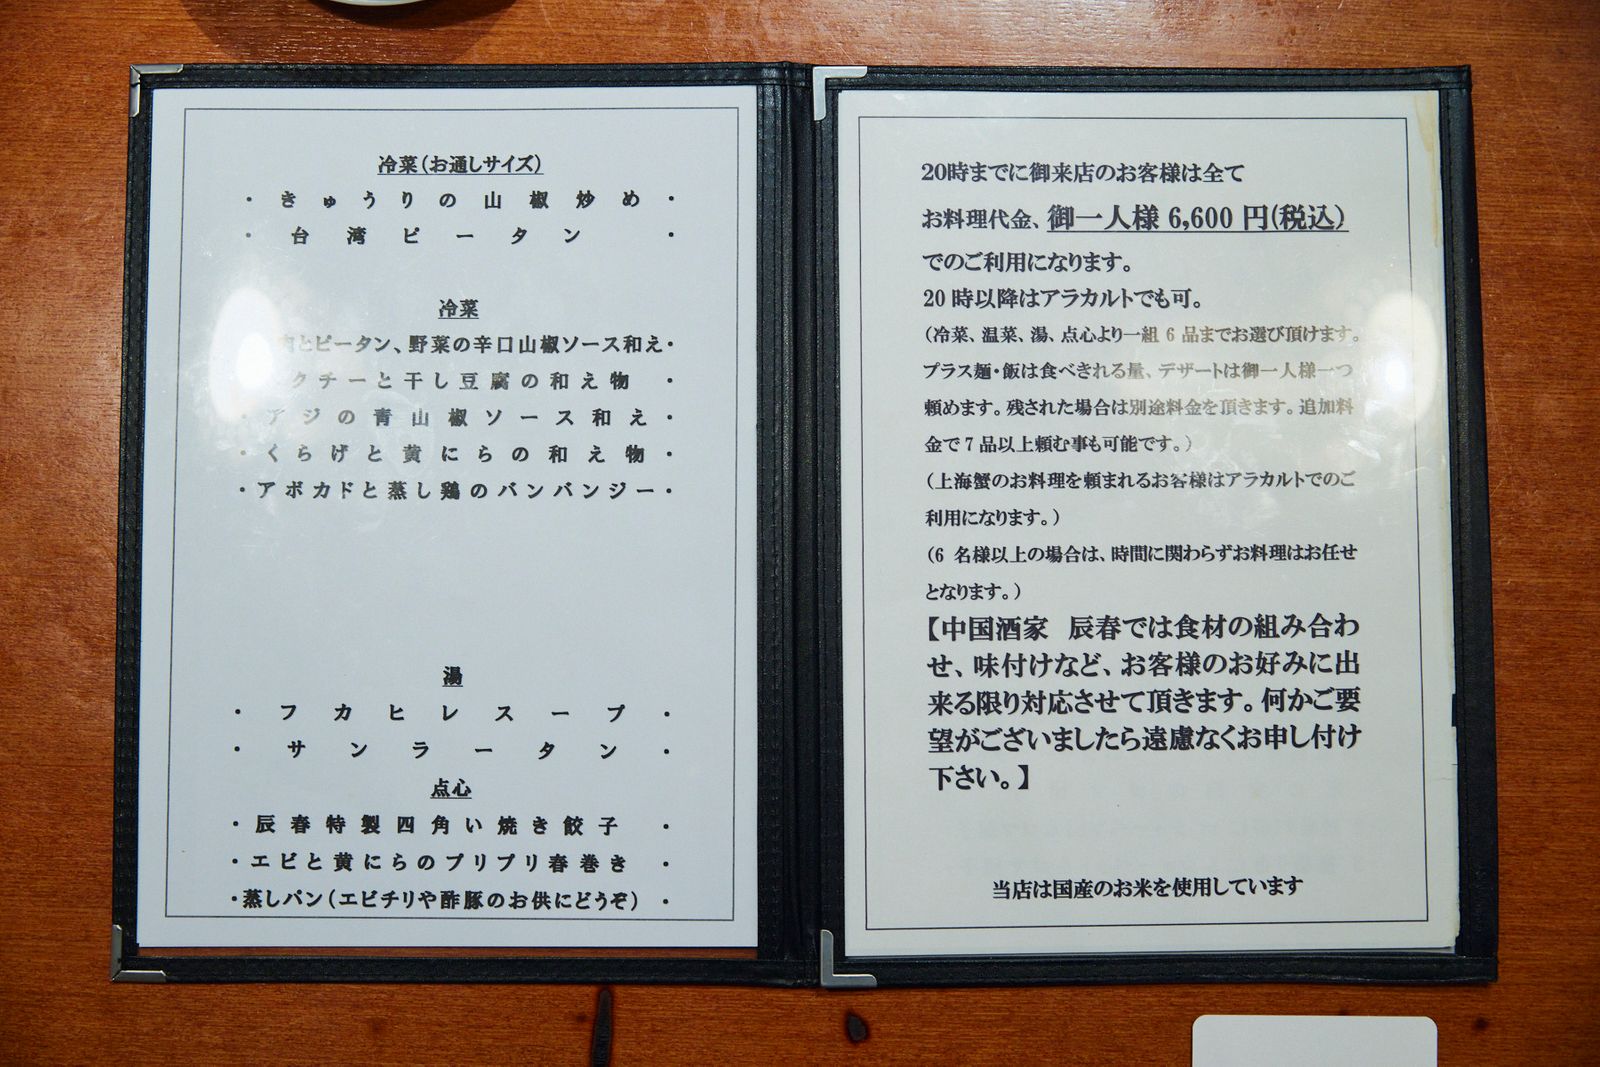 冷菜(お通しサイズ)
・きゅうりの山椒炒め・
・台湾ピータン・
冷菜
とピータン、野菜の辛口山椒ソース和え・
クチーと干し豆腐の和え物・
・アジの青山椒ソース和え・
・くらげと黄にらの和え物・
・アボカドと蒸し鶏のバンバンジー・
湯
・フカヒレスープ・
・サンラータン・
点心
・辰春特製四角い焼き餃子・
・エビと黄にらのプリプリ春巻き・
・蒸しパン(エビチリや酢豚のお供にどうぞ)・
20時までに御来店のお客様は全て
お料理代金、御一人様 6,600 円(税込)
でのご利用になります。
20 時以降はアラカルトでも可。
(冷菜、温菜、湯、点心より一組 6 品までお選び頂けます。
プラス麺・飯は食べきれる量、デザートは御一人様一つ
頼めます。残された場合は別途料金を頂きます。追加料
金で 7 品以上頼む事も可能です。)
(上海蟹のお料理を頼まれるお客様はアラカルトでのご
利用になります。)
(6 名様以上の場合は、時間に関わらずお料理はお任せ
となります。)
【中国酒家 辰春では食材の組み合わ
せ、味付けなど、お客様のお好みに出
来る限り対応させて頂きます。何かご要
望がございましたら遠慮なくお申し付け
下さい。】
当店は国産のお米を使用しています